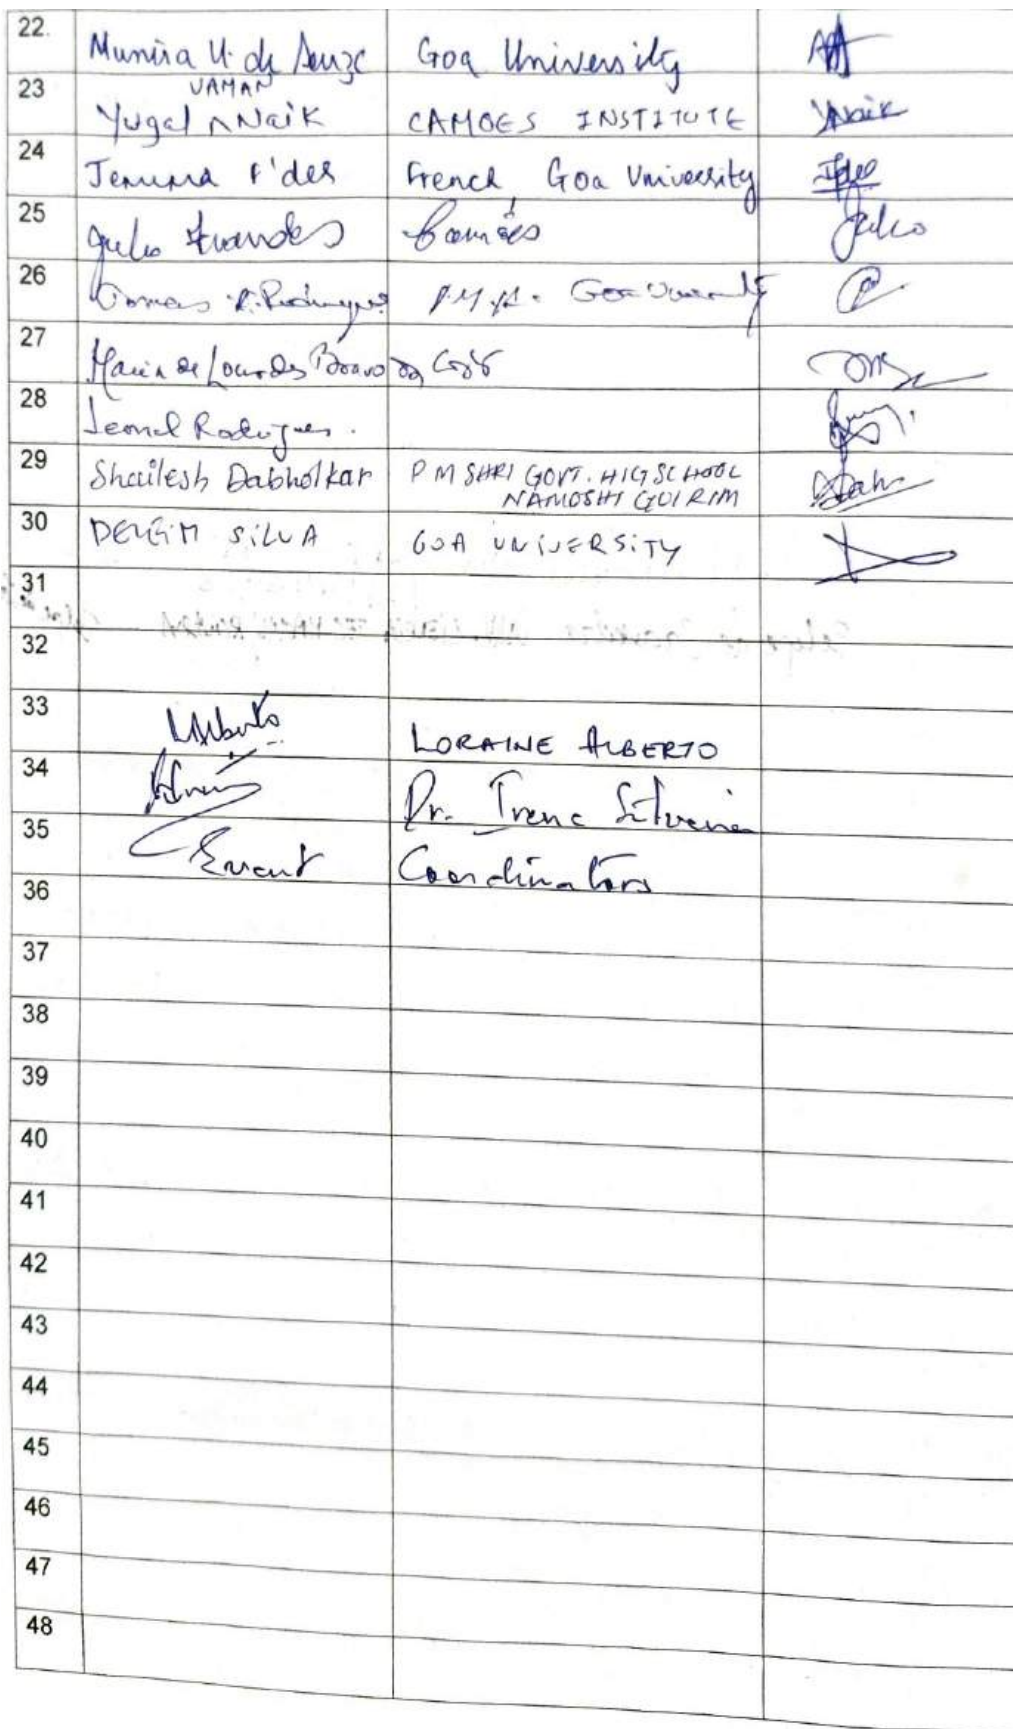 22. Munira U. de Souza Goa University
VAMAN
23 Yugal ^ Naik CAMOES INSTITUTE YNaik
24 Jemima F'des French, Goa University
25 Julio Fernandes Camões Julio
26 Tomas Rodrigues Goa University
27 Maria de Lourdes Bravo da Costa
28 Leonel Rodrigues.
29 Shailesh Dabholkar P M SHRI GOVT. HIGSCHOOL
NAMOSHI GUIRIM
30 DELFIM SILVA GOA UNIVERSITY
31
32
33 LAlberto LORAINE ALBERTO
34 Dr. Irene Silveira
35 Event Coordinators
36
37
38
39
40
41
42
43
44
45
46
47
48